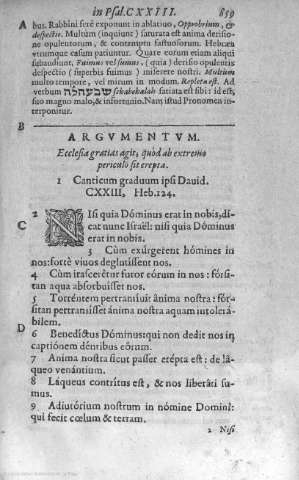 in Psal. CXXIII. 859
A
bus. Rabbini ferè exponunt in ablatiuo, Opprobrium, &
despectio. Multùm (inquiunt) saturata est anima derisio-
ne opulentorum, & contemptu fastuosorum. Hebræa
vtrumque casum patiuntur. Quare eorum etiam aliqui
subaudiunt, Fuimus vel sumus, (quia) derisio opulentis
despectio (superbis fuimus) miserere nostri. Multùm
multo tempore, vel mirum in modum. Repleta est. Ad
verbum שבעה לה sebahah lah satiata est sibi: id est,
suo magno malo, & infortunio. Nam istud Pronomen in-
terponitur.
B
ARGVMENTVM.
Ecclesia gratias agit, quòd ab extremo
periculo sit erepta.
1 Canticum graduum ipsi Dauid.
CXXIII, Heb. 124.
2 NIsi quia Dóminus erat in nobis, di-
C
cat nunc Israël: nisi quia Dóminus
erat in nobis.
3 Cùm exúrgerent hómines in
nos: fortè viuos deglutíssent nos.
4 Cùm irascerétur furor eórum in nos: fórsi-
tan aqua absorbuísset nos.
5 Torréntem pertransíuit ánima nostra: fór-
sitan pertransísset ánima nostra aquam intole rá-
bilem.
D
6 Benedíctus Dóminus: qui non dedit nos in
captiónem déntibus eórum.
7 Anima nostra sicut passer erépta est: de lá-
queo venántium.
8 Láqueus contrítus est, & nos liberáti su-
mus.
9 Adiutórium nostrum in nómine Dómini:
qui fecit cœlum & terram.
2 Nisi